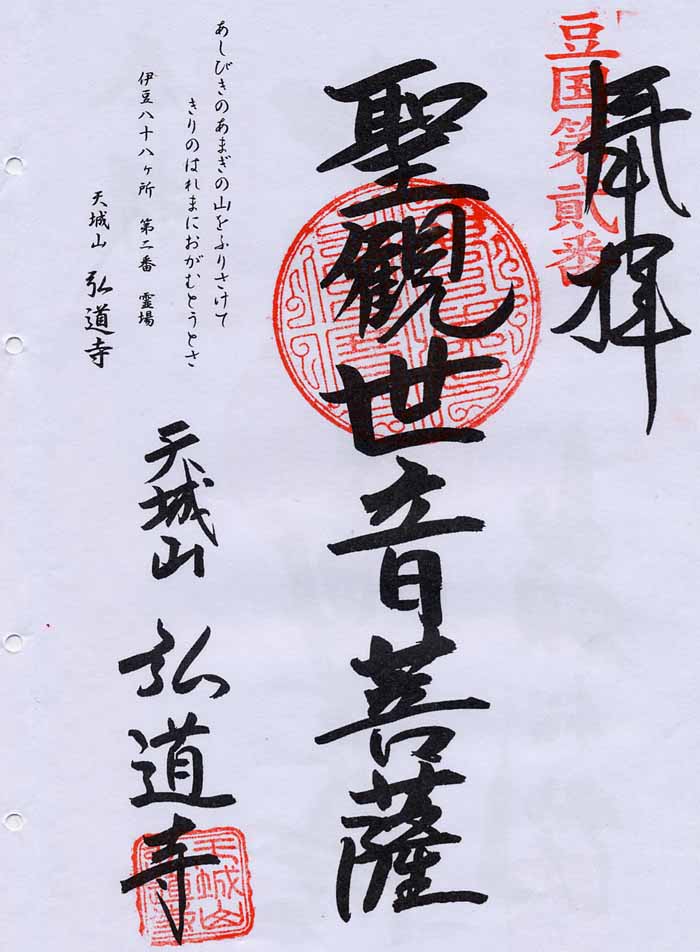 豆国第貳番
奉拝
聖観世音菩薩
あしびきのあまぎの山をふりさけて
きりのはれまにおがむとうとさ
伊豆八十八ヶ所 第二番 霊場
天城山 弘道寺
天城山 弘道寺
天城山
弘道寺